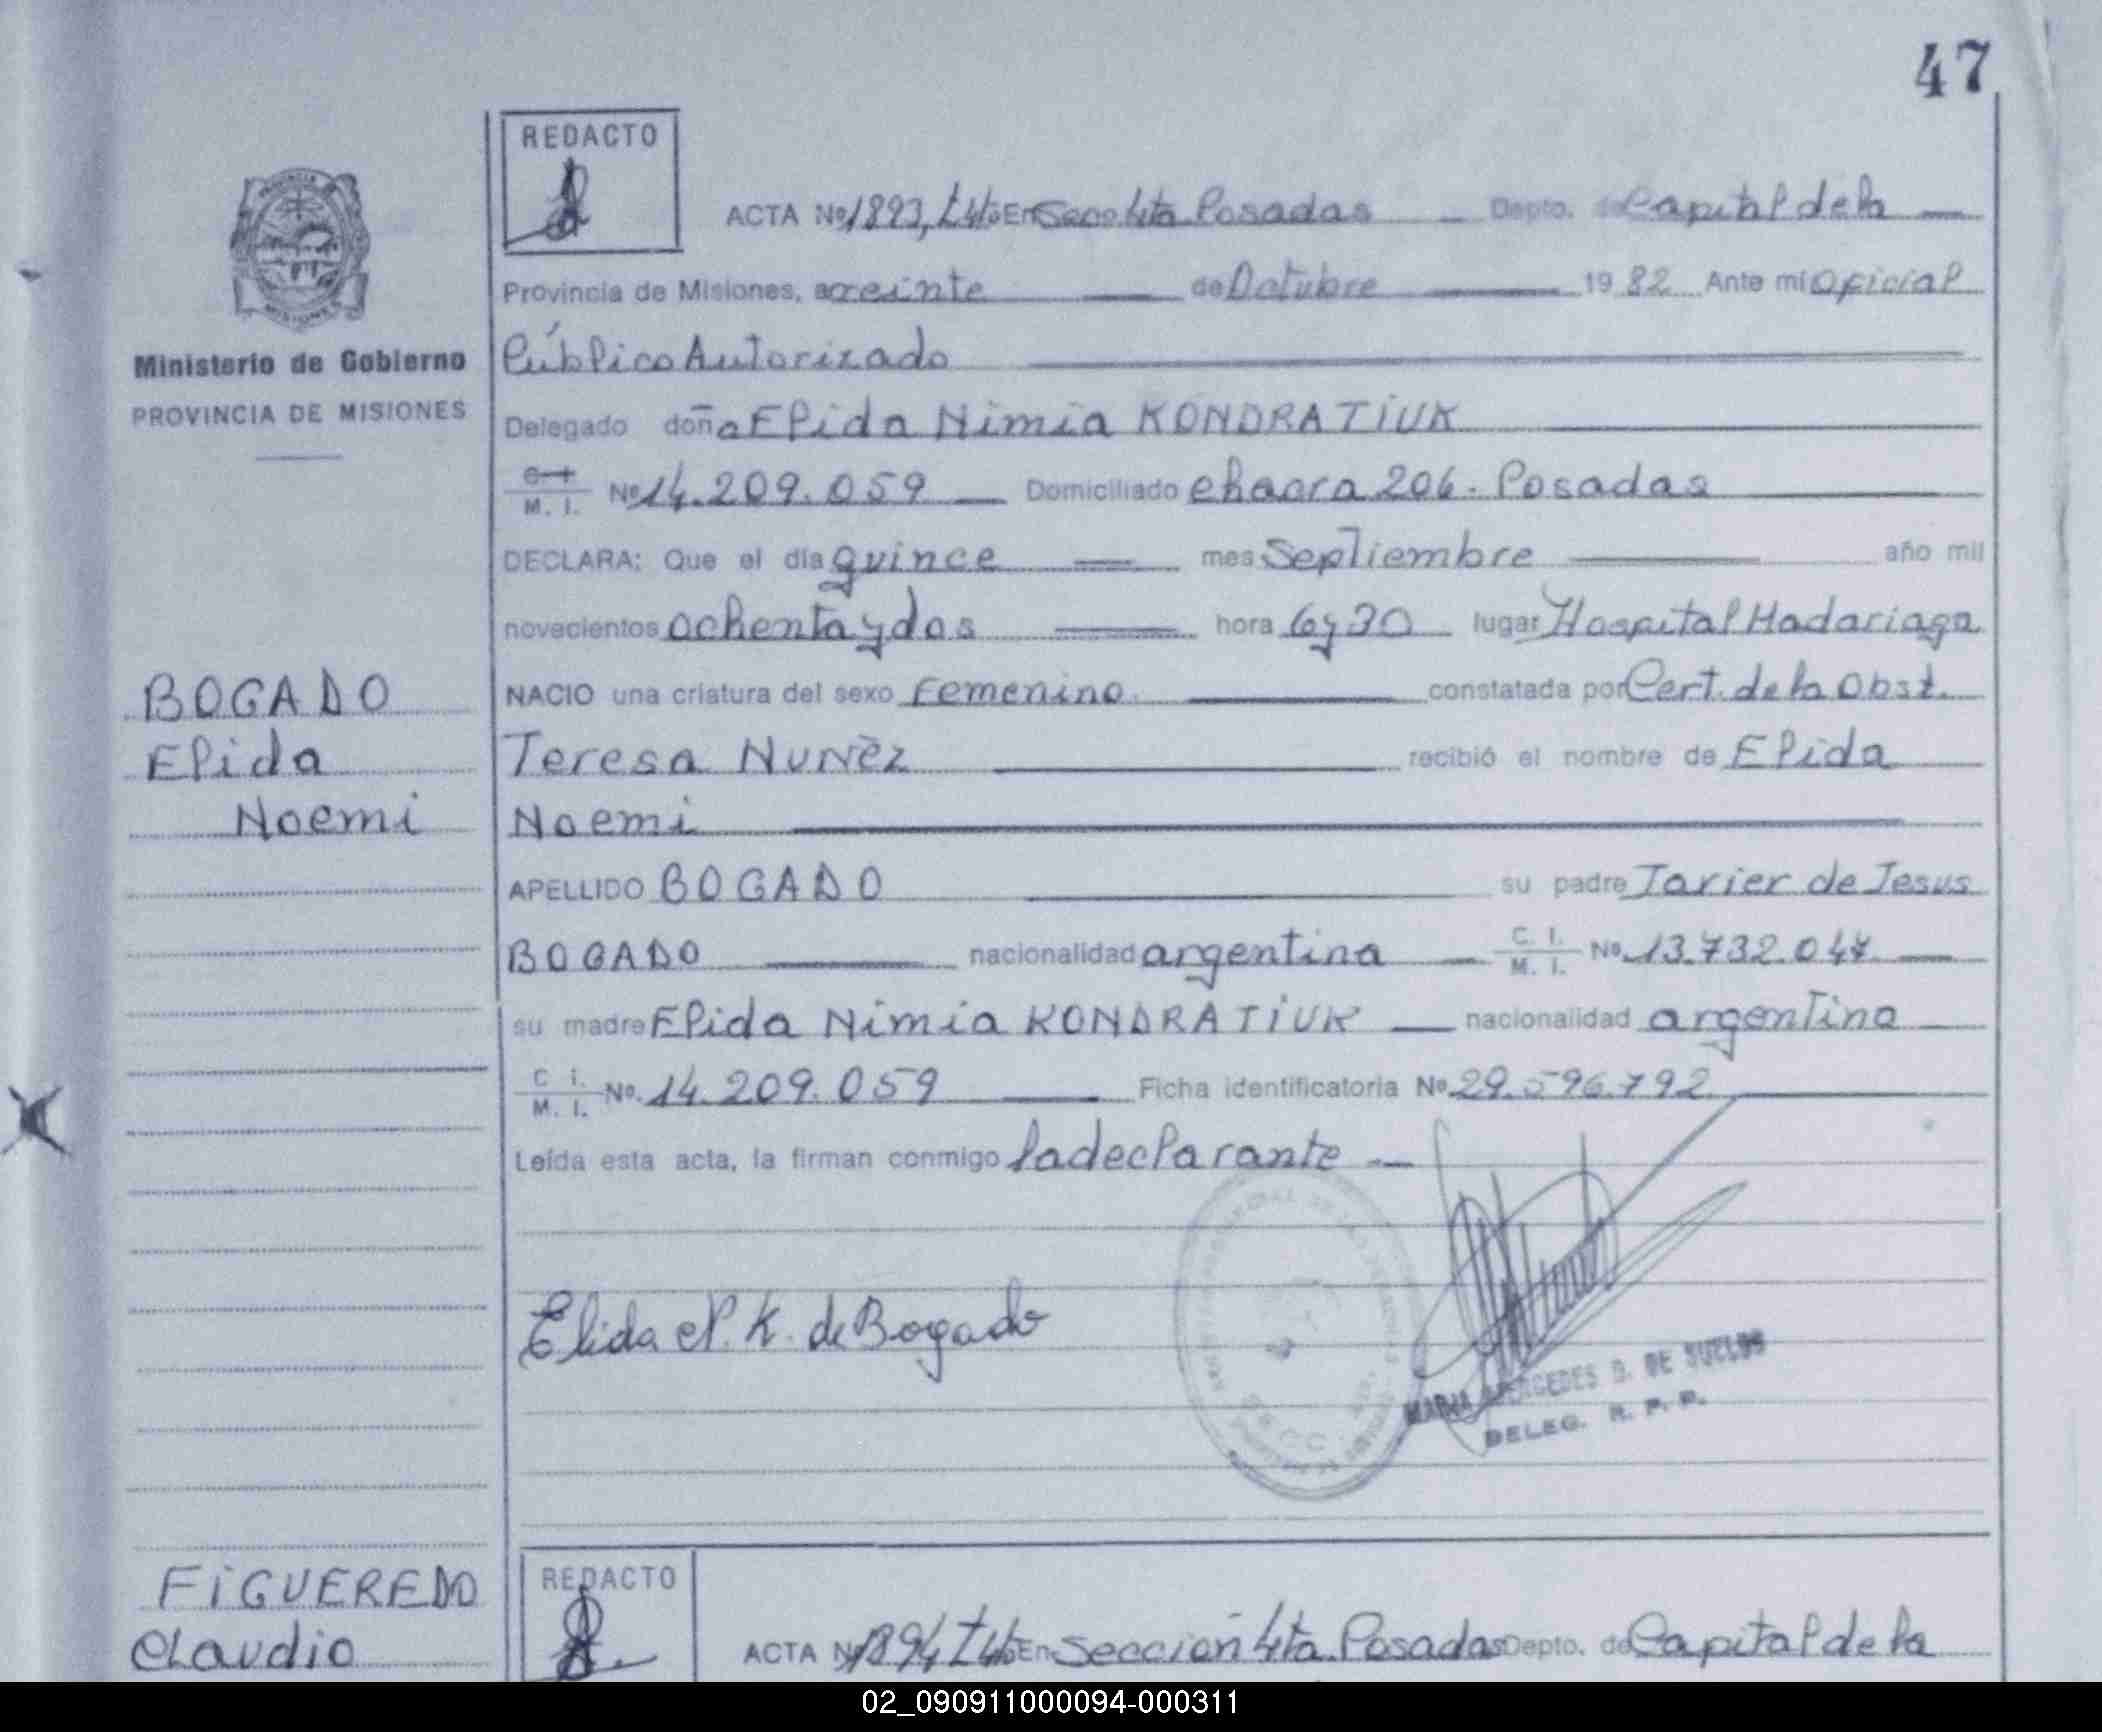 47
REDACTO
ACTA Nº 1893, Tº 4to En Secc 4ta Posadas Depto. de Capital de la
Provincia de Misiones, a veinte de Octubre 1982 Ante mi Oficial
Público Autorizado
Ministerio de Gobierno
PROVINCIA DE MISIONES
Delegado doña Elida Nimia KONDRATIUK
M. I. Nº 14.209.059 Domiciliado chacra 206. Posadas
DECLARA: Que el día quince mes Septiembre año mil
novecientos ochenta y dos hora 6 y 30 lugar Hospital Madariaga
BOGADO
Elida
Noemi
NACIO una criatura del sexo Femenino constatada por Cert. de la Obst.
Teresa NUÑEZ recibió el nombre de Elida
Noemi
APELLIDO BOGADO su padre Javier de Jesus
BOGADO nacionalidad argentina C. I. M. I. No. 13.732.047
su madre Elida Nimia KONDRATIUK nacionalidad argentina
C. I. M. I. No. 14.209.059 Ficha identificatoria Nº 29.596.792
Leída esta acta, la firman conmigo la declarante
Elida N. K. de Bogado
MARIA MERCEDES D. DE SUELDO
DELEG. R. P. P.
FIGUEREDO
Claudio
REDACTO
ACTA Nº 1894 Tº 4to En Sección 4ta. Posadas Depto. de Capital de la
02_090911000094-000311